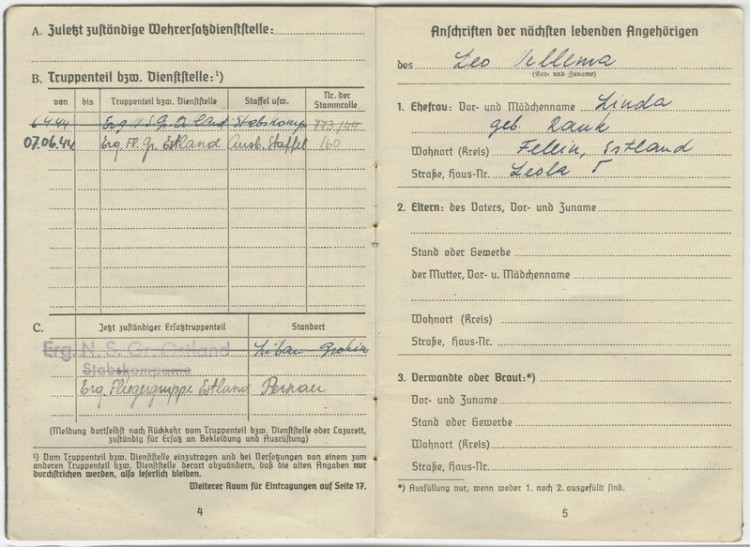 A. Zuletzt zuständige Wehrersatzdienststelle:
B. Truppenteil bzw. Dienststelle:¹)
von bis Truppenteil bzw. Dienststelle Staffel usw. Nr. der Stammrolle
6.4.44 Erg. N.S.Gr. Ostland Stabskomp.
07.06.44 Erg. Fl. Gr. Estland Ausb. Staffel 160
C. Jetzt zuständiger Ersatztruppenteil Standort
Erg. N. S. Gr. Ostland Libau Grobin
Stabskompanie
Erg. Fliegergruppe Estland Pernau
(Meldung dortselbst nach Rückkehr vom Truppenteil bzw. Dienststelle oder Lazarett,
zuständig für Ersatz an Bekleidung und Ausrüstung)
¹) Vom Truppenteil bzw. Dienststelle einzutragen und bei Versetzungen von einem zum
anderen Truppenteil bzw. Dienststelle derart abzuändern, daß die alten Angaben nur
durchstrichen werden, also leserlich bleiben.
Weiterer Raum für Eintragungen auf Seite 17.
4
Anschriften der nächsten lebenden Angehörigen
des Leo
(Vor- und Zuname)
1. Ehefrau: Vor- und Mädchenname Linda
geb. Rauk
Wohnort (Kreis) Fellin, Estland
Straße, Haus-Nr. Leola 5
2. Eltern: des Vaters, Vor- und Zuname
Stand oder Gewerbe
der Mutter, Vor- u. Mädchenname
Wohnort (Kreis)
Straße, Haus-Nr.
3. Verwandte oder Braut:*)
Vor- und Zuname
Stand oder Gewerbe
Wohnort (Kreis)
Straße, Haus-Nr.
*) Ausfüllung nur, wenn weder 1. noch 2. ausgefüllt sind.
5